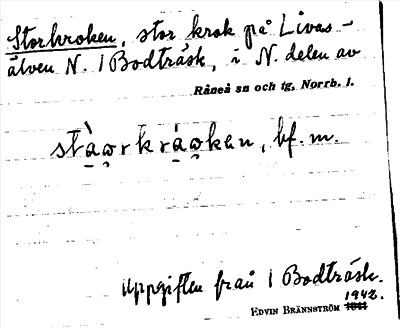 Storkroken, stor krok på Livas-
älven N. i Bodträsk, i N. delen av
Råneå sn och tg, Norrb. l.
stàwrkràwkən, bf. m.
Uppgiften från i Bodträsk.
1942.
EDVIN BRÄNNSTRÖM 1941